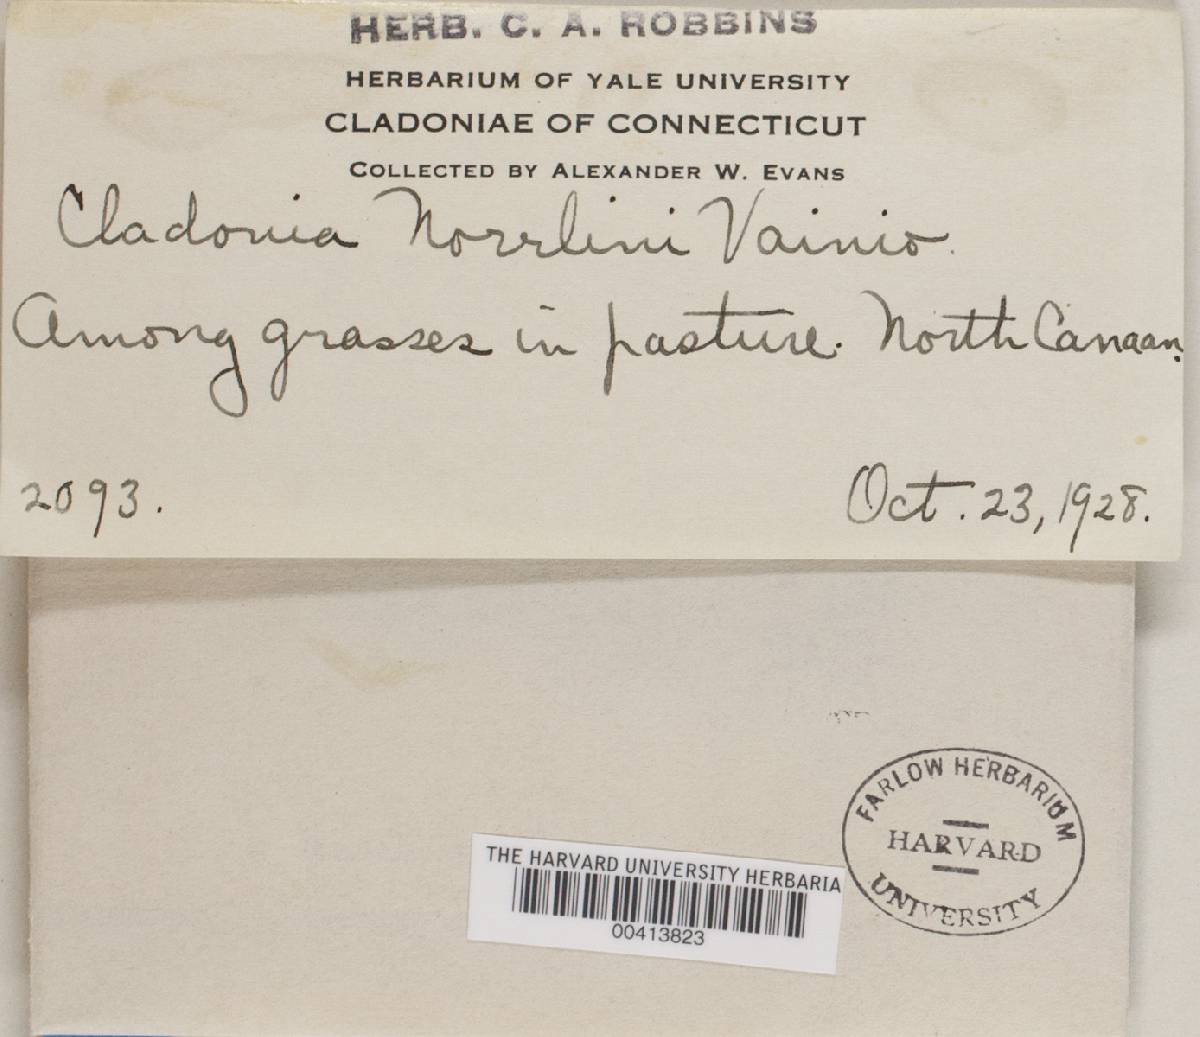 HERB. C. A. ROBBINS
HERBARIUM OF YALE UNIVERSITY
CLADONIAE OF CONNECTICUT
COLLECTED BY ALEXANDER W. EVANS
Cladonia Norrlini Vainio.
Among grasses in pasture. North Canaan.
2093.
Oct. 23, 1928.
FARLOW HERBARIUM
HARVARD
UNIVERSITY
THE HARVARD UNIVERSITY HERBARIA
00413823